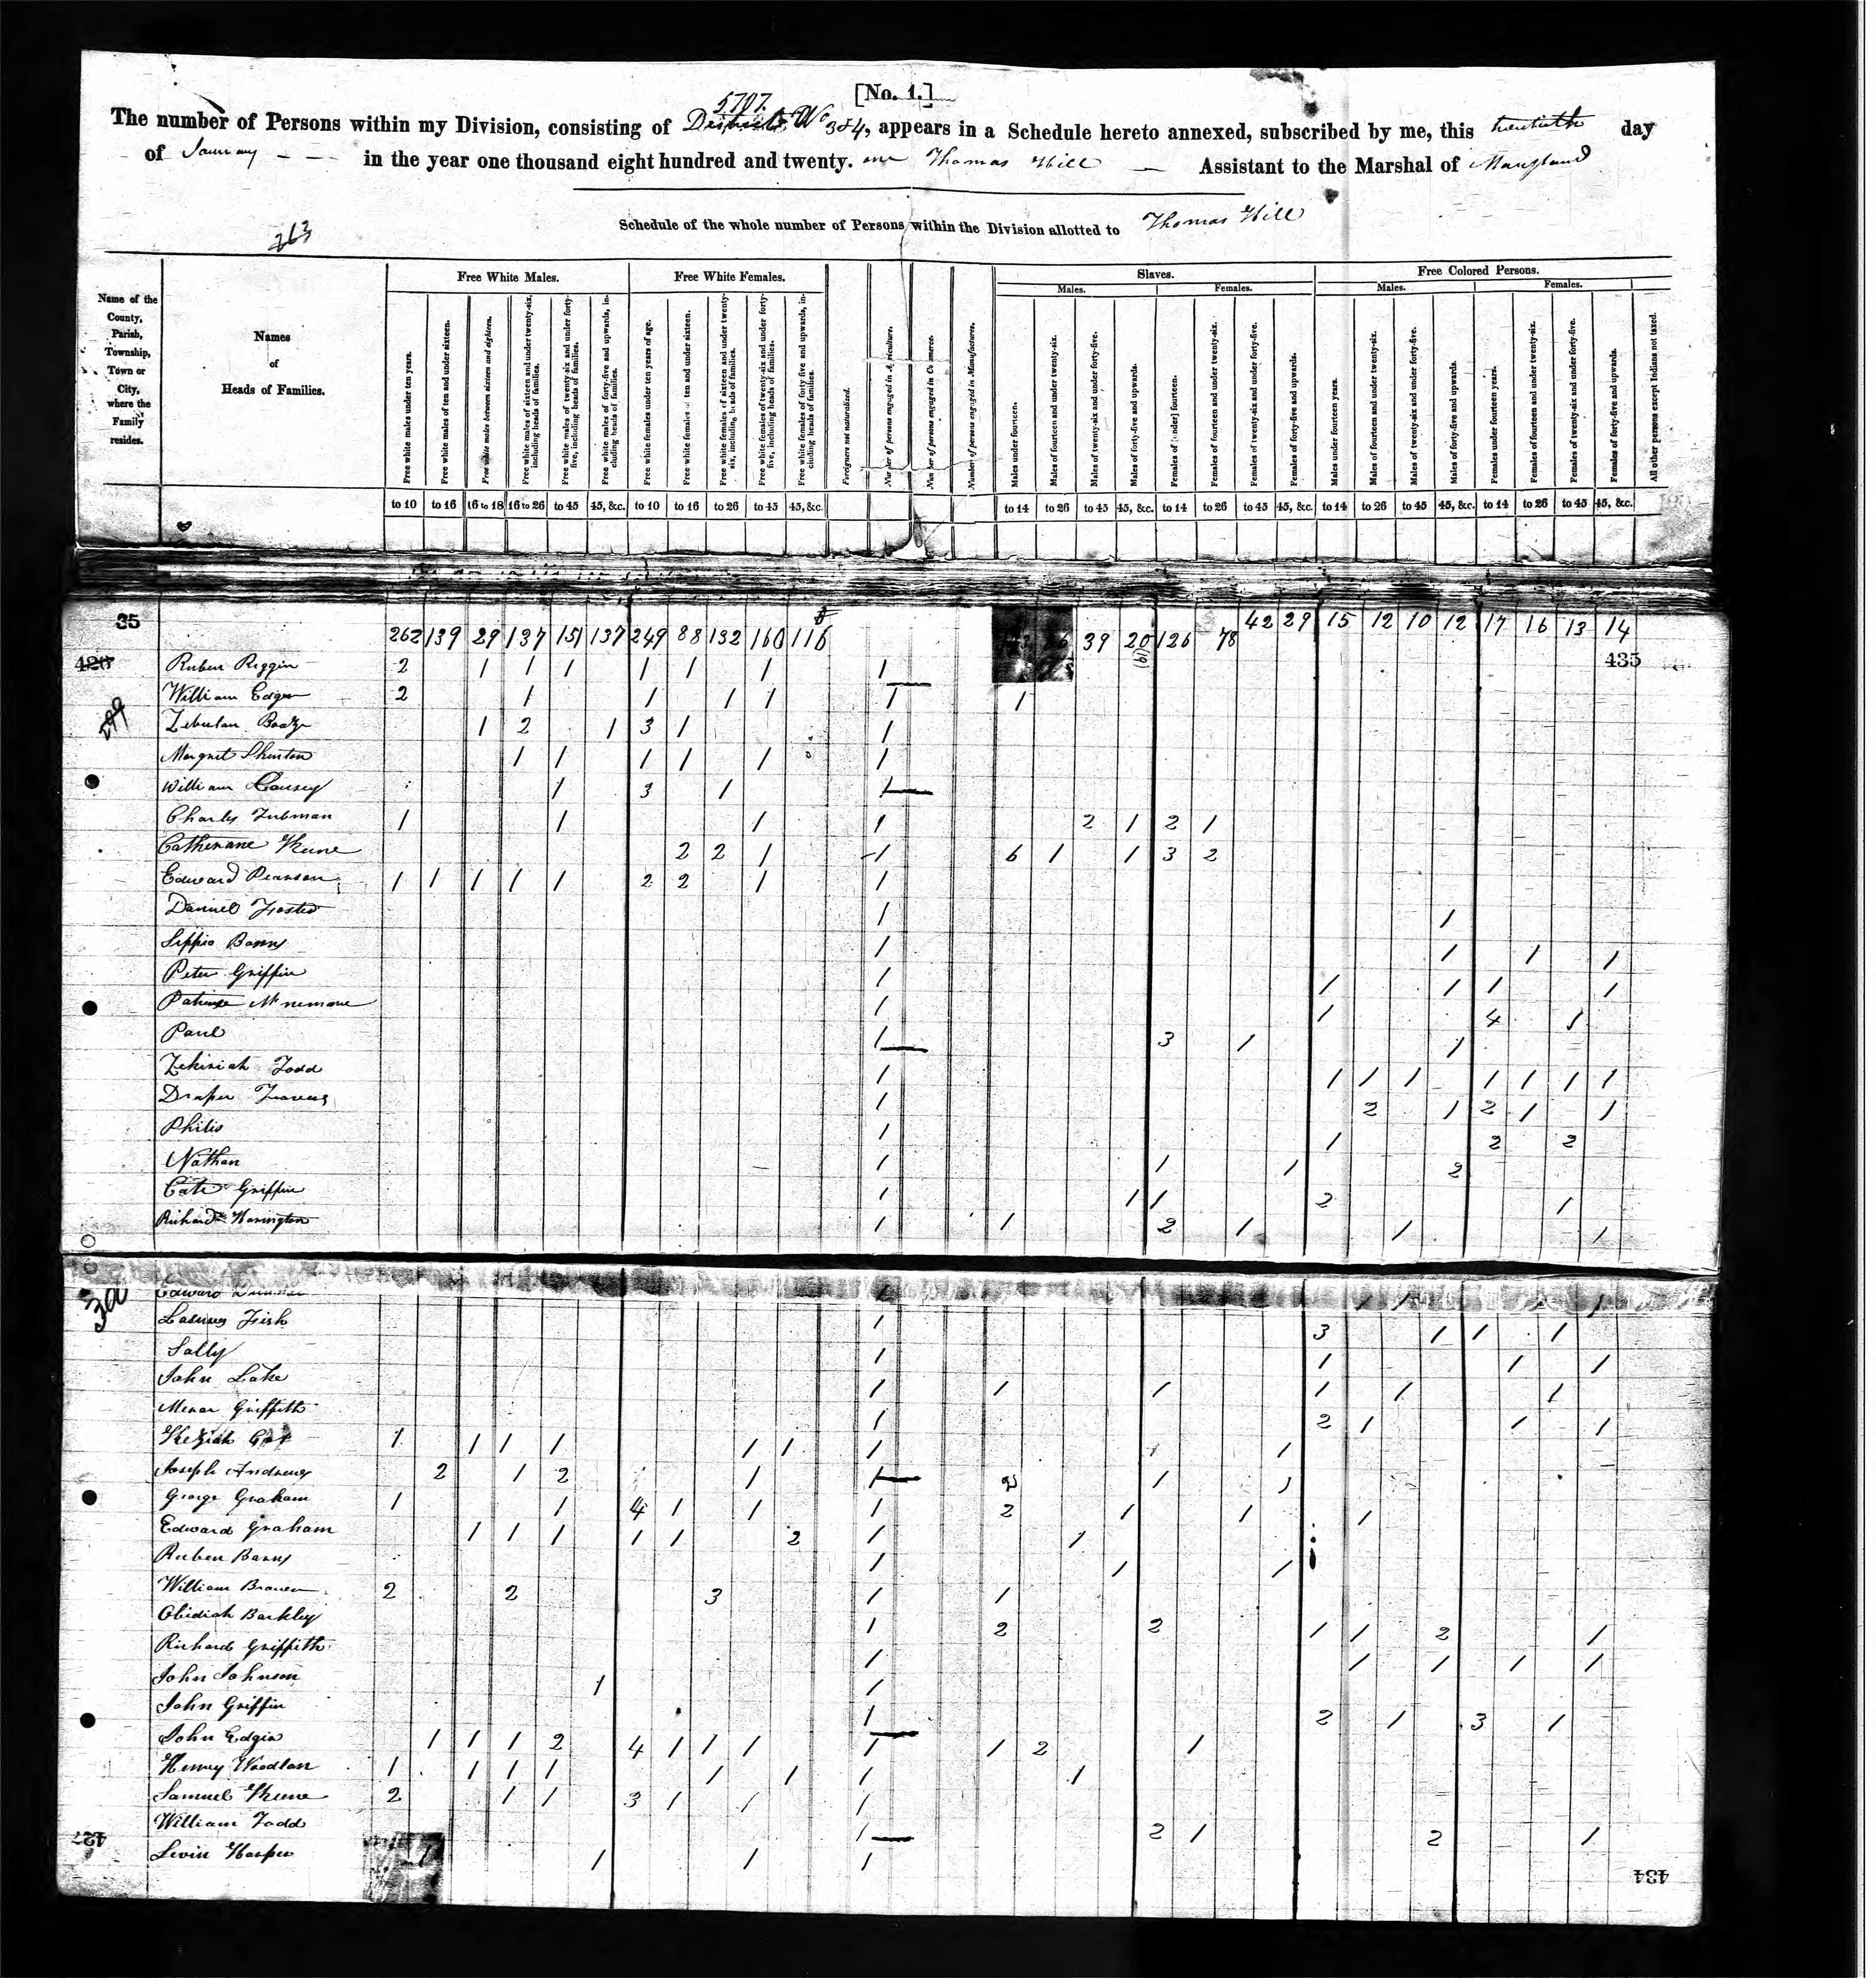 [No. 1.]
5707.
The number of Persons within my Division, consisting of Districts No 3 & 4, appears in a Schedule hereto annexed, subscribed by me, this twentieth day
of January - - - in the year one thousand eight hundred and twenty. one Thomas Hill — Assistant to the Marshal of Maryland
Schedule of the whole number of Persons within the Division allotted to Thomas Hill
263
Name of the County, Parish, Township, Town or City, where the Family resides.
Names of Heads of Families.
Free White Males.
Free white males under ten years.
Free white males of ten and under sixteen.
Free white males between sixteen and eighteen.
Free white males of sixteen and under twenty-six, including heads of families.
Free white males of twenty-six and under forty-five, including heads of families.
Free white males of forty-five and upwards, including heads of families.
Free White Females.
Free white females under ten years of age.
Free white females of ten and under sixteen.
Free white females of sixteen and under twenty-six, including heads of families.
Free white females of twenty-six and under forty-five, including heads of families.
Free white females of forty five and upwards, including heads of families.
Foreigners not naturalized.
Number of persons engaged in Agriculture.
Number of persons engaged in Commerce.
Number of persons engaged in Manufactures.
Slaves.
Males. Females.
Males under fourteen.
Males of fourteen and under twenty-six.
Males of twenty-six and under forty-five.
Males of forty-five and upwards.
Females of under] fourteen.
Females of fourteen and under twenty-six.
Females of twenty-six and under forty-five.
Females of forty-five and upwards.
Free Colored Persons.
Males. Females.
Males under fourteen years.
Males of fourteen and under twenty-six.
Males of twenty-six and under forty-five.
Males of forty-five and upwards.
Females under fourteen years.
Females of fourteen and under twenty-six.
Females of twenty-six and under forty-five.
Females of forty-five and upwards.
All other persons except Indians not taxed.
to 10 to 16 16 to 18 16 to 26 to 45 45, &c. to 10 to 16 to 26 to 45 45, &c. to 14 to 26 to 45 45, &c. to 14 to 26 to 45 45, &c. to 14 to 26 to 45 45, &c. to 14 to 26 to 45 45, &c.
35 262 139 29 137 151 137 249 88 132 160 116 39 20 126 78 42 29 15 12 10 12 17 16 13 14
426 Ruben Riggin 2 1 1 1 1 1 1 1 435
William Edger 2 1 1 1 1 1 1
299 Zebulan 1 2 1 3 1 1
Margret 1 1 1 1 1 1
William Causey 1 3 1 1
Charles Tubman 1 1 1 1 2 1 2 1
Catherane Keene 2 2 1 1 6 1 1 3 2
Edward Pearson 1 1 1 1 1 2 2 1 1
Daniel 1 1
Sippio Barns 1 1 1 1
Peter Griffin 1 1 1 1 1
1 1 4 1
Paul 1 3 1 1
Zekiriah Todd 1 1 1 1 1 1 1 1
Draper Travers 1 2 1 2 1 1
Philis 1 1 2 2
Nathan 1 1 1 2
Cate Griffin 1 1 1 2 1
Richard Harington 1 1 2 1 1 1
Edward 1 1 1 1 1
Fish 1 3 1 1 1
Sally 1 1 1 1
John Lake 1 1 1 1 1 1
Griffith 1 2 1 1 1
Keziah 1 1 1 1 1 1 1 1
Joseph Andrews 2 1 2 1 1 2 1 1
George Graham 1 1 4 1 1 1 2 1 1 1
Edward Graham 1 1 1 1 1 2 1 1
Ruben Barns 1 1 1
William 2 2 3 1 1
Obidiah Barkley 1 2 2 1 1 2 1
Richard Griffith 1 1 1 1 1
John Johnson 1 1
John Griffin 1 2 1 3 1
John Edgin 1 1 1 2 4 1 1 1 1 1 2 1
Henry Woodlan 1 1 1 1 1 1 1 1
Samuel Keene 2 1 1 3 1 1 1
William Todd 1 2 1 2 1
427 Levin Harper 1 1 1 1
434